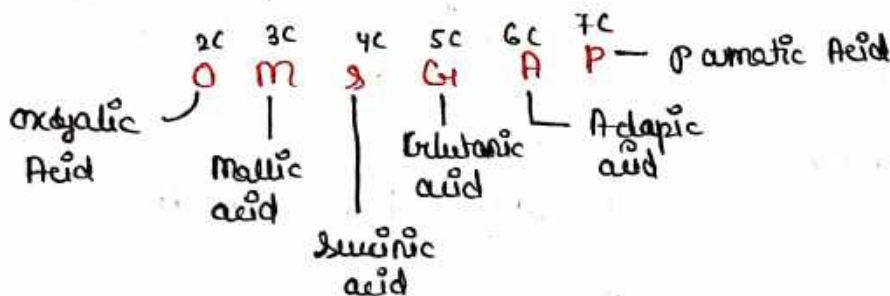 2C 3C 4C 5C 6C 7C
O M S G A P — Pamatic Acid
oxyalic Acid
Mallic acid
Succinic acid
Glutanic acid
Adapic acid